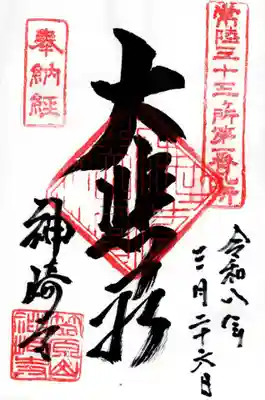 常陸三十三ヶ所第一番札所
奉納経
大悲殿
神崎寺
令和八年
三月二十六日